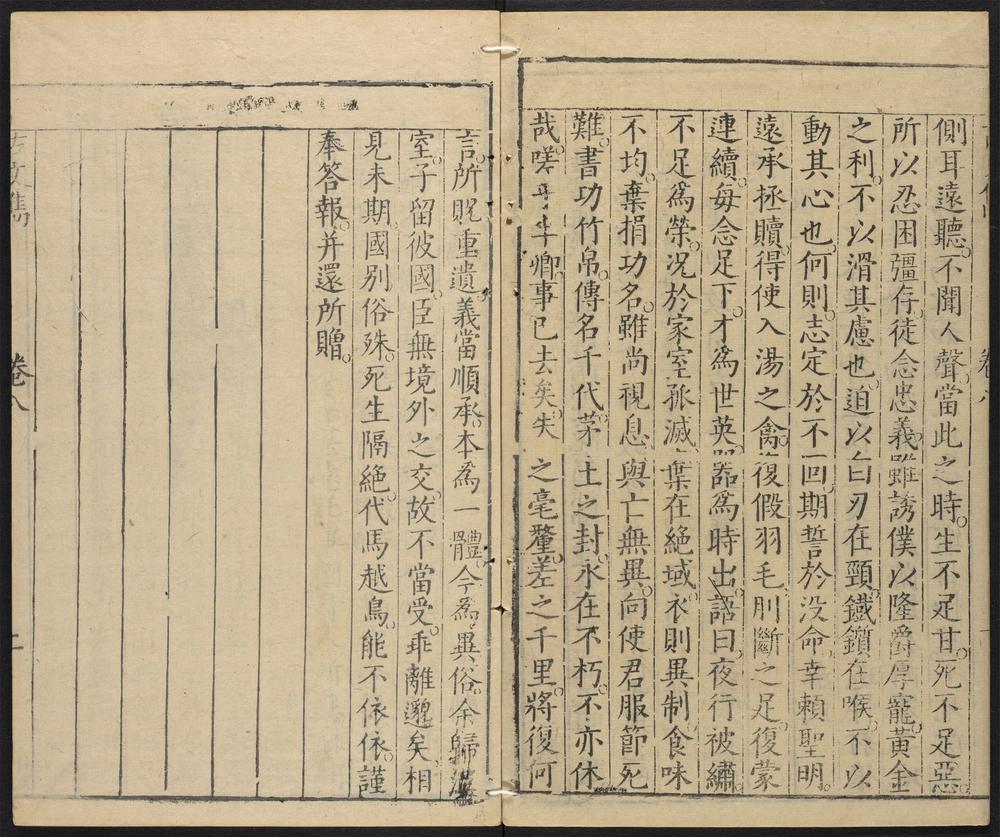 側耳遠聽。不聞人聲。當此之時。生不足甘。死不足惡。
所以忍困彊存。徒念忠義。雖誘僕以隆爵厚寵。黃金
之利。不以滑其慮也。迫以白刃在頸。鐵鎖在喉。不以
動其心也。何則。志定於不回。期誓於没命。幸賴聖明。
遠承拯贖。得使入湯之禽。復假羽毛。刖斷之足。復蒙
連續。每念足下。才爲世英。器爲時出。語曰。夜行被繡。
不足爲榮。况於家室孤滅。棄在絶域。衣則異制。食味
不均。棄捐功名。雖尚視息。與亡無異。向使君服節死
難。書功竹帛。傳名千代。茅土之封。永在不朽。不亦休
哉。嗟乎 卿。事已去矣。失之毫釐。差之千里。將復何
言。所貺重遺。義當順承。本爲一體。今爲異俗。余歸漢
室。子留彼國。臣無境外之交。故不當受。乖離邈矣。相
見未期。國別俗殊。死生隔絶。代馬越鳥。能不依依。謹
奉答報。并還所贈。
卷八
古文雋
卷八